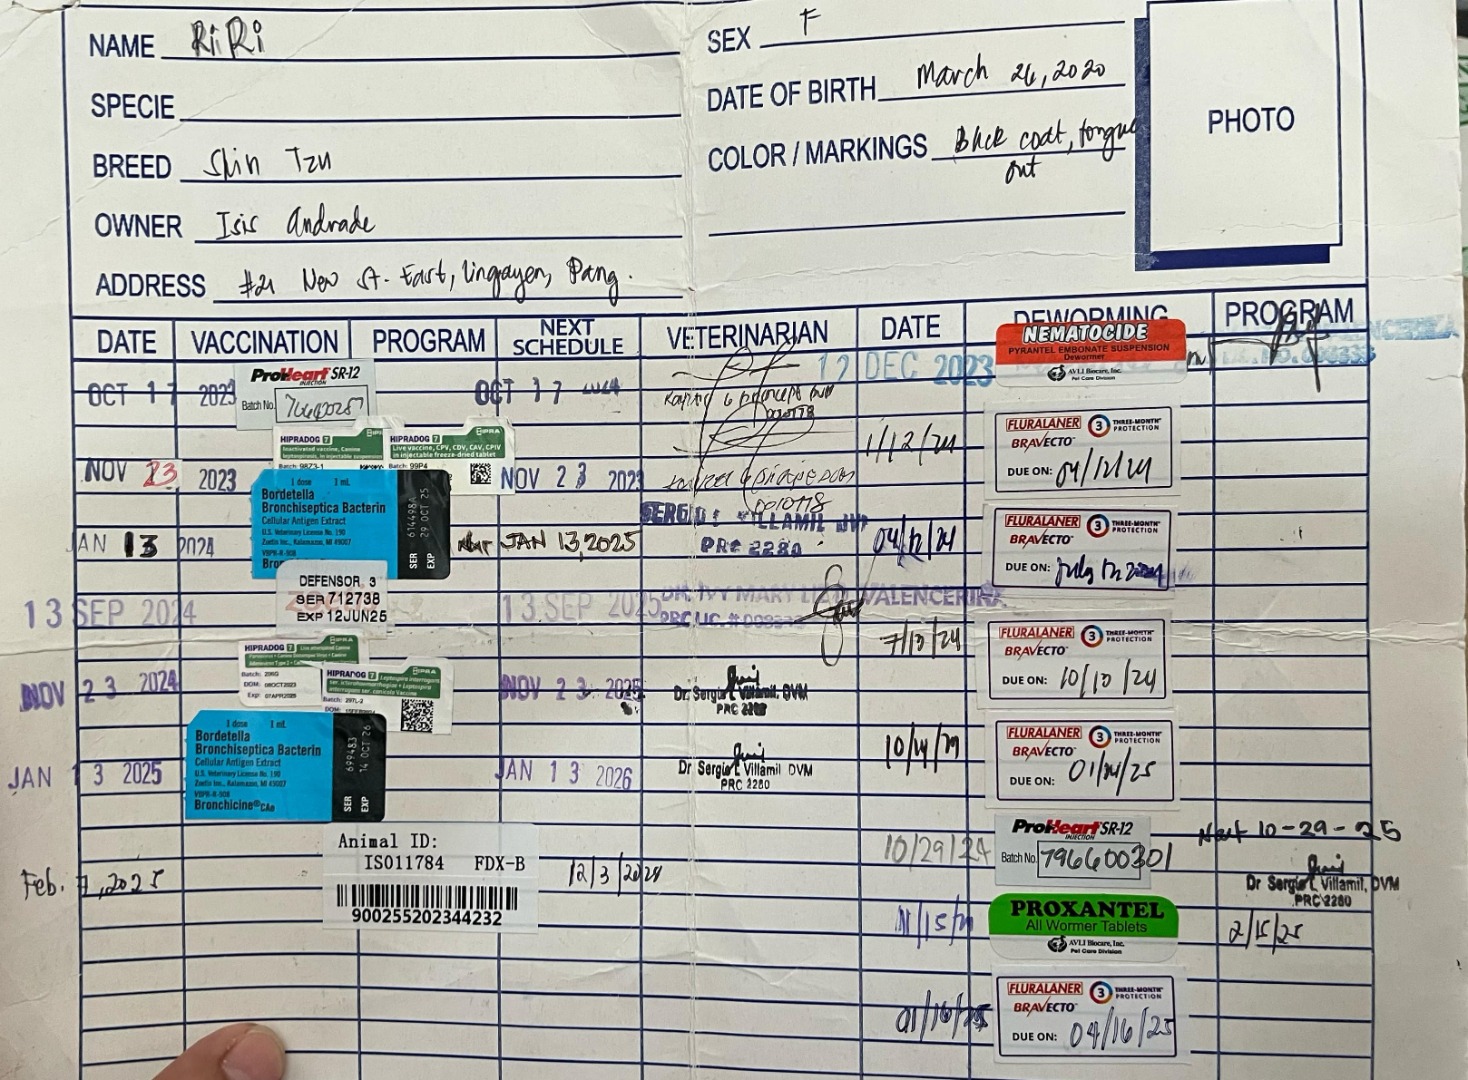 NAME RiRi
SEX F
SPECIE
DATE OF BIRTH March 26, 2020
PHOTO
BREED Shin Tzu
COLOR / MARKINGS Black coat, tongue
out
OWNER Isis Andrade
ADDRESS #21 New St. East, Lingayen, Pang.
DATE VACCINATION PROGRAM NEXT SCHEDULE VETERINARIAN DATE DEWORMING PROGRAM
12 DEC 2023
NEMATOCIDE
PYRANTEL EMBONATE SUSPENSION
Dewormer
AVLI Biocare, Inc.
Pet Care Division
OCT 17 2023
ProHeart SR-12
INJECTION
Batch No.
OCT 17
1/12/24
FLURALANER 3 THREE-MONTH PROTECTION
BRAVECTO
DUE ON: 04/12/24
NOV 23 2023
HIPRADOG 7 HIPRA
Inactivated vaccine, Canine
leptospirosis, in injectable suspension
Batch: 98Z3-1
HIPRADOG 7 HIPRA
Live vaccine, CPV, CDV, CAV, CPIV
in injectable freeze-dried tablet
Batch: 99P4
NOV 23 2023
JAN 13 2024
1 dose 1 mL
Bordetella
Bronchiseptica Bacterin
Cellular Antigen Extract
U.S. Veterinary License No. 190
Zoetis Inc., Kalamazoo, MI 49007
VBPR-R-508
SER 614498A
EXP 29 OCT 25
JAN 13, 2025
SERGIO VILLAMIL
PRC 2280
04/12/24
FLURALANER 3 THREE-MONTH PROTECTION
BRAVECTO
DUE ON: July 12 2024
13 SEP 2024
DEFENSOR 3
SER 712738
EXP 12JUN25
13 SEP 2025
DR. IVY MARY VALENCERINA
7/13/24
FLURALANER 3 THREE-MONTH PROTECTION
BRAVECTO
DUE ON: 10/13/24
NOV 23 2024
HIPRADOG 7 HIPRA
DOM: 08OCT2023
Exp: 07APR2026
HIPRADOG 7 HIPRA
Batch: 297L-2
NOV 23 2025
Dr. Sergio L. Villamil, DVM
PRC 2280
10/14/24
FLURALANER 3 THREE-MONTH PROTECTION
BRAVECTO
DUE ON: 01/14/25
JAN 13 2025
1 dose 1 mL
Bordetella
Bronchiseptica Bacterin
Cellular Antigen Extract
U.S. Veterinary License No. 190
Zoetis Inc., Kalamazoo, MI 49007
VBPR-R-508
Bronchicine® CAe
SER 699483
EXP 14 OCT 26
JAN 13 2026
Dr. Sergio L. Villamil DVM
PRC 2280
10/29/24
ProHeart SR-12
INJECTION
Batch No. 796600301
Next 10-29-25
Dr. Sergio L. Villamil, DVM
PRC 2280
Feb. 7, 2025
Animal ID:
ISO11784 FDX-B
900255202344232
12/3/2024
11/15/24
PROXANTEL
All Wormer Tablets
AVLI Biocare, Inc.
Pet Care Division
2/15/25
01/16/25
FLURALANER 3 THREE-MONTH PROTECTION
BRAVECTO
DUE ON: 04/16/25